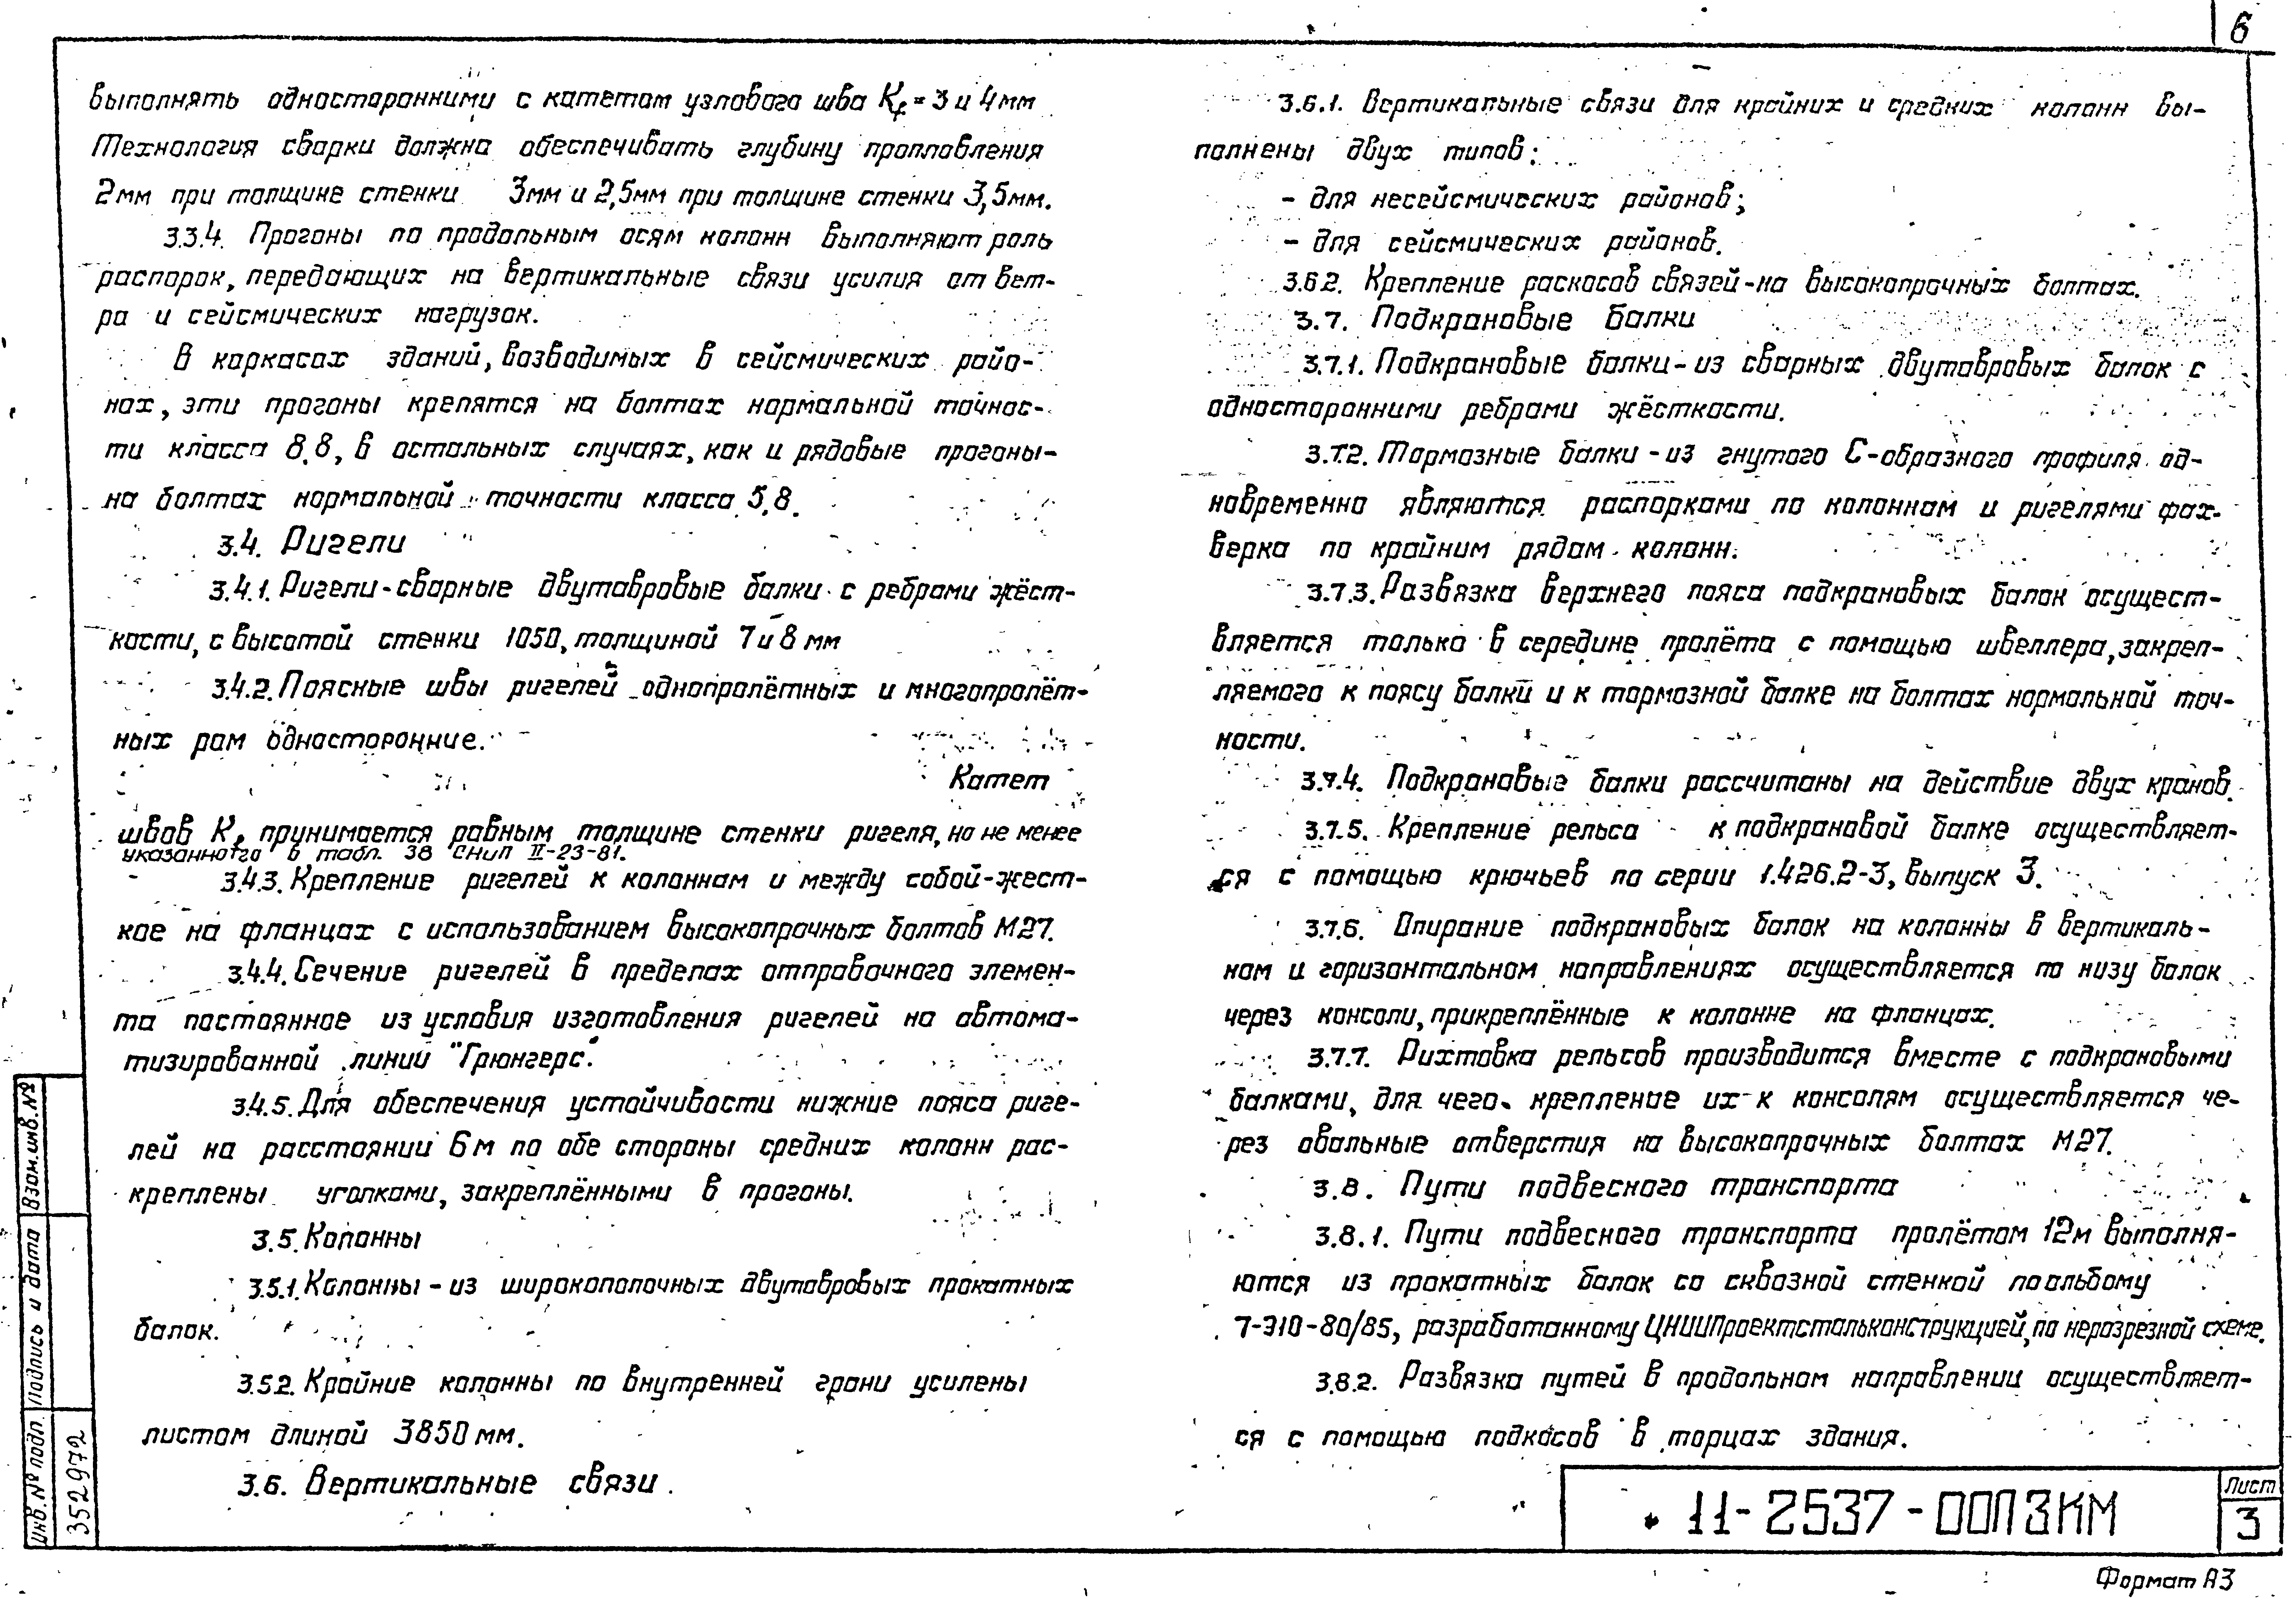 6
выполнять односторонними с катетом углового шва Kf = 3 и 4 мм
Технология сварки должна обеспечивать глубину проплавления
2мм при толщине стенки 3мм и 2,5мм при толщине стенки 3,5мм.
3.3.4. Прогоны по продольным осям колонн выполняют роль
распорок, передающих на вертикальные связи усилия от вет-
ра и сейсмических нагрузок.
В каркасах зданий, возводимых в сейсмических райо-
нах, эти прогоны крепятся на болтах нормальной точнос-
ти класса 8.8, в остальных случаях, как и рядовые прогоны-
на болтах нормальной точности класса 5.8.
3.4. Ригели
3.4.1. Ригели-сварные двутавровые балки с ребрами жёст-
кости, с высотой стенки 1050, толщиной 7 и 8 мм
3.4.2. Поясные швы ригелей однопролётных и многопролёт-
ных рам односторонние.
Катет
швов Kf принимается равным толщине стенки ригеля, но не менее
указанного в табл. 38 СНиП II-23-81.
3.4.3. Крепление ригелей к колоннам и между собой-жест-
кое на фланцах с использованием высокопрочных болтов М27.
3.4.4. Сечение ригелей в пределах отправочного элемен-
та постоянное из условия изготовления ригелей на автома-
тизированной линии "Грюнгерс".
3.4.5. Для обеспечения устойчивости нижние пояса риге-
лей на расстоянии 6м по обе стороны средних колонн рас-
креплены уголками, закреплёнными в прогоны.
3.5. Колонны
3.5.1. Колонны - из широкополочных двутавровых прокатных
балок.
3.5.2. Крайние колонны по внутренней грани усилены
листом длиной 3850 мм.
3.6. Вертикальные связи.
3.6.1. Вертикальные связи для крайних и средних колонн вы-
полнены двух типов:
- для несейсмических районов;
- для сейсмических районов.
3.6.2. Крепление раскосов связей-на высокопрочных болтах.
3.7. Подкрановые балки
3.7.1. Подкрановые балки-из сварных двутавровых балок с
односторонними ребрами жёсткости.
3.7.2. Тормозные балки - из гнутого С-образного профиля од-
новременно являются распорками по колоннам и ригелями фах-
верка по крайним рядам колонн.
3.7.3. Развязка верхнего пояса подкрановых балок осущест-
вляется только в середине пролёта с помощью швеллера, закреп-
ляемого к поясу балки и к тормозной балке на болтах нормальной точ-
ности.
3.7.4. Подкрановые балки рассчитаны на действие двух кранов.
3.7.5. Крепление рельса к подкрановой балке осуществляет-
ся с помощью крючьев по серии 1.426.2-3, выпуск 3.
3.7.6. Опирание подкрановых балок на колонны в вертикаль-
ном и горизонтальном направлениях осуществляется по низу балок
через консоли, прикреплённые к колонне на фланцах.
3.7.7. Рихтовка рельсов производится вместе с подкрановыми
балками, для чего крепление их к консолям осуществляется че-
рез овальные отверстия на высокопрочных болтах М27.
3.8. Пути подвесного транспорта
3.8.1. Пути подвесного транспорта пролётом 12м выполня-
ются из прокатных балок со сквозной стенкой по альбому
7-910-80/85, разработанному ЦНИИПроектстальконструкцией, по неразрезной схеме.
3.8.2. Развязка путей в продольном направлении осуществляет-
ся с помощью подкосов в торцах здания.
Взам.инв.№
Подпись и дата
Инв.№ подл.
352972
11-2537-00ПЗКМ
Лист
3
Формат А3